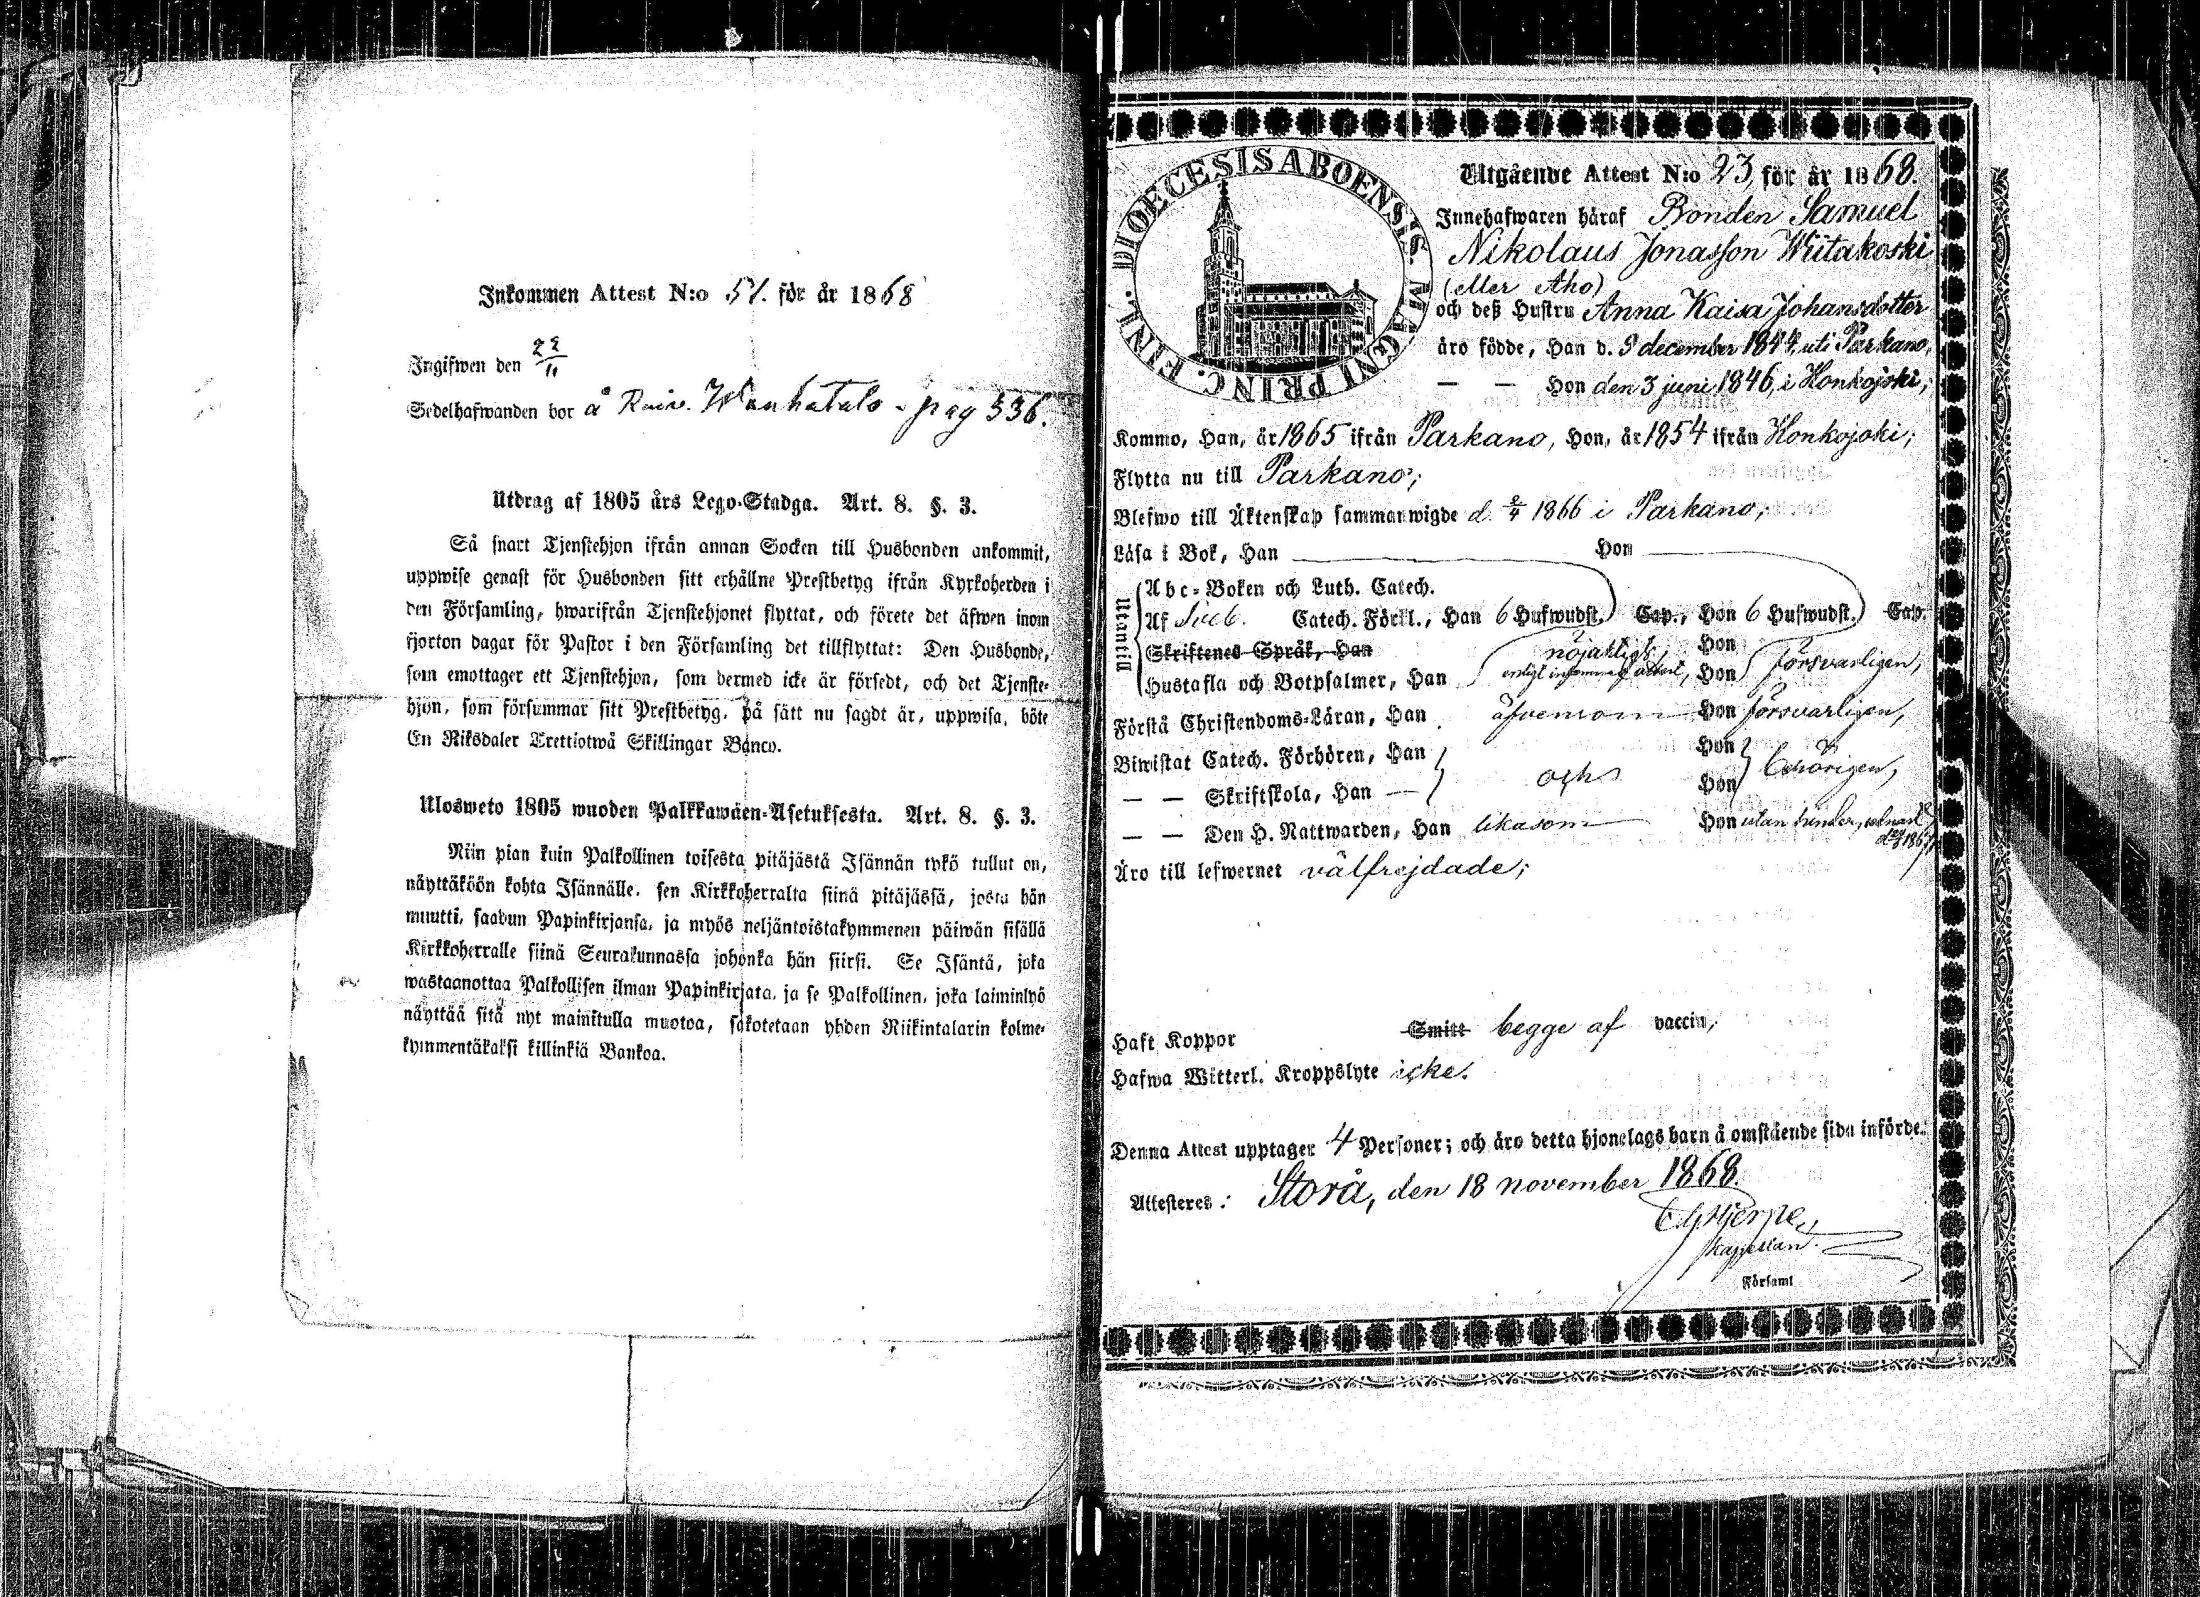 Inkommen Attest N:o 51. för år 1868
Ingifwen den 22/11
Sedelhafwanden bor å Raiv. Wanhatalo - pag 336.
Utdrag af 1805 års Lego-Stadga. Art. 8. §. 3.
Så snart Tjenstehjon ifrån annan Socken till Husbonden ankommit,
uppwise genast för Husbonden sitt erhållne Prestbetyg ifrån Kyrkoherden i
den Församling, hwarifrån Tjenstehjonet flyttat, och förete det äfwen inom
fjorton dagar för Pastor i den Församling det tillflyttat: Den Husbonde,
som emottager ett Tjenstehjon, som dermed icke är försedt, och det Tjenste-
hjon, som försummar sitt Prestbetyg, på sätt nu sagdt är, uppwisa, böte
En Riksdaler Trettiotwå Skillingar Banco.
Ulosweto 1805 wuoden Palkkawäen-Asetuksesta. Art. 8. §. 3.
Niin pian kuin Palkollinen toisesta pitäjästä Isännän tykö tullut on,
näyttäköön kohta Isännälle, sen Kirkkoherralta siinä pitäjässä, josta hän
muutti, saadun Papinkirjansa, ja myös neljäntoistakymmenen päiwän sisällä
Kirkkoherralle siinä Seurakunnassa johonka hän siirsi. Se Isäntä, joka
wastaanottaa Palkollisen ilman Papinkirjata, ja se Palkollinen, joka laiminlyö
näyttää sitä nyt mainitulla muotoa, sakotetaan yhden Riikintalarin kolme-
kymmentäkaksi killinkiä Bankoa.
DIOECESIS ABOENSIS. MAGNI PRINC. FINL.
Utgående Attest N:o 23, för år 1868.
Innehafwaren häraf Bonden Samuel
Nikolaus Jonasson Wiitakoski
(eller Aho)
och deß Hustru Anna Kaisa Johansdotter
äro födde, Han d. 9 december 1844, uti Parkano,
— — Hon den 3 juni 1846, i Honkojoki,
Kommo, Han, år 1865 ifrån Parkano, Hon, år 1854 ifrån Honkojoki;
Flytta nu till Parkano;
Blefwo till Äktenskap sammanwigde d. 2/4 1866 i Parkano,
Läsa i Bok, Han Hon
Utantill
Abc-Boken och Luth. Catech.
Af Sveb. Catech. Förkl., Han 6 Hufwudst. Cap., Hon 6 Hufwudst. Cap.
Skriftenes Språk, Han nöjaktigt, Hon
Hustafla och Botpsalmer, Han enligt inkommen attest, Hon försvarligen,
Förstå Christendoms-Läran, Han äfvensom Hon försvarligen,
Biwistat Catech. Förhören, Han Hon
— — Skriftskola, Han — och Hon behörigen,
— — Den H. Nattwarden, Han likasom Hon utan hinder,
Äro till lefwernet välfrejdade;
Haft Koppor Smitt begge af vaccin,
Hafwa Witterl. Kroppslyte icke.
Denna Attest upptager 4 Personer; och äro detta hjonelags barn å omstående sida införde.
Attesteres: Storå, den 18 november 1868.
Hjerpe,
kapellan.
Församl